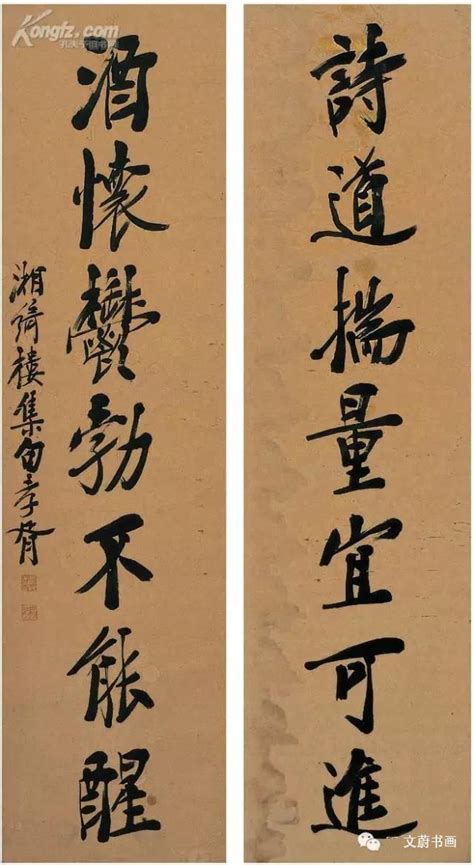 詩道揣量宜可進
酒懷鬱勃不能醒
湘綺樓集句孝胥
Kongfz.com
孔夫子旧书网
文蔚书画